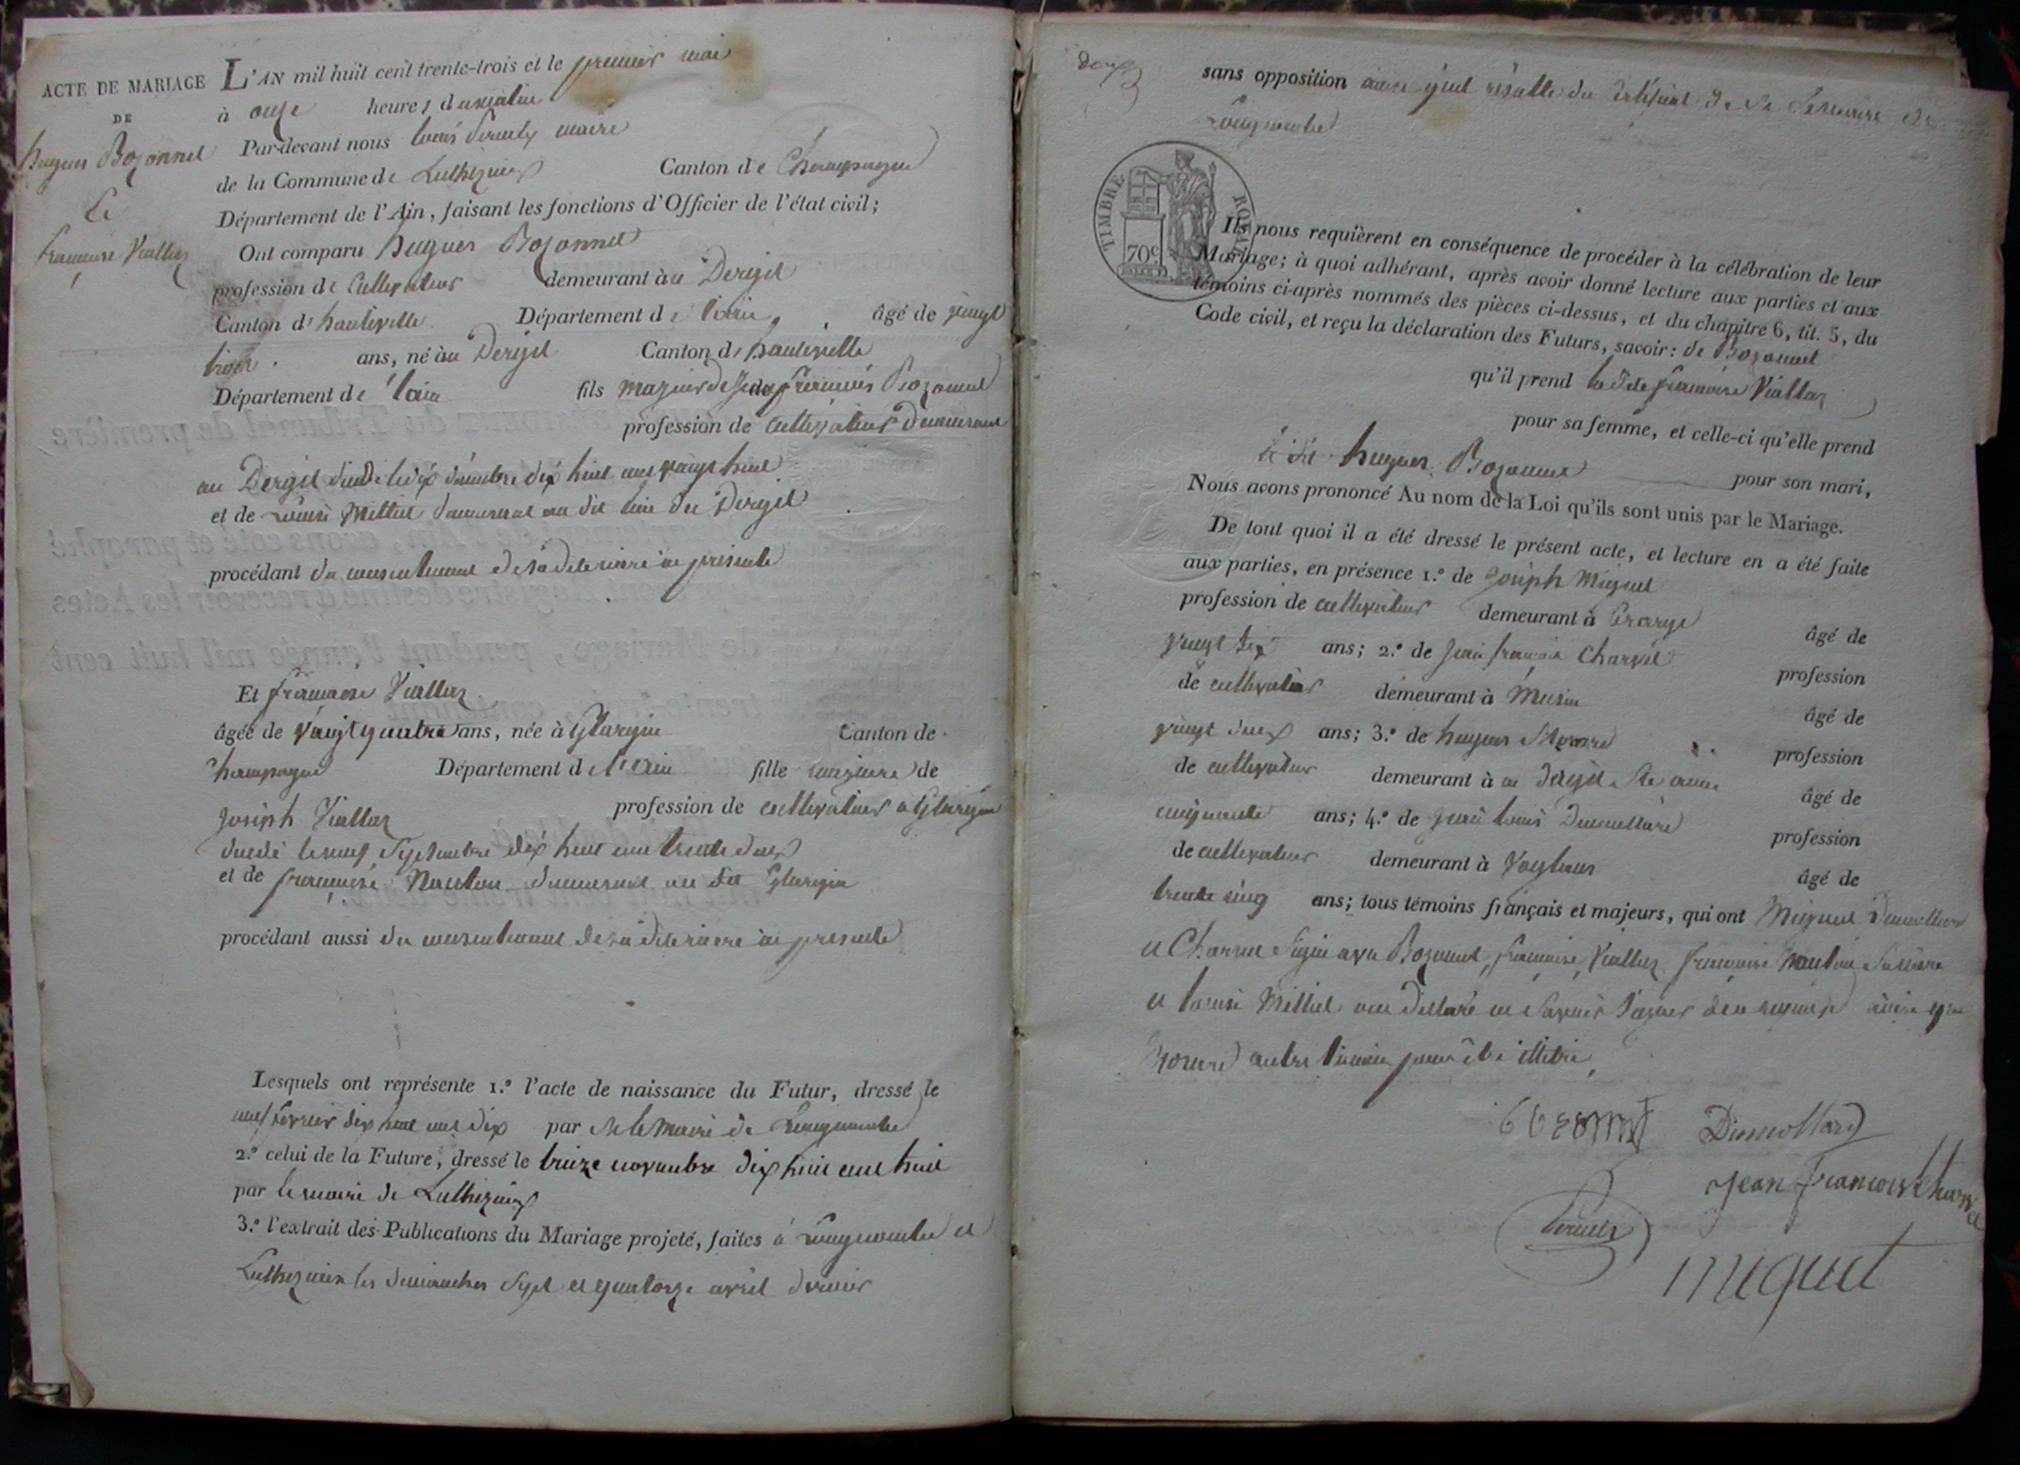 ACTE DE MARIAGE
DE
hugues Bozonnet
Et
françoise Viallez
L'AN mil huit cent trente-trois et le premier mai
à onze heures du matin
Par-devant nous louis maire
de la Commune de Luthezieu Canton de Champagne
Département de l'Ain, faisant les fonctions d'Officier de l'état civil;
Ont comparu hugues Bozonnet
profession de Cultivateur demeurant au Dergit
Canton d'hauteville Département de l'ain âgé de vingt
trois ans, né au Dergit Canton d'hauteville
Département de l'ain fils majeur de françois Bozonnet
profession de cultivateur demeurant
au Dergit décédé le dix dix huit cent vingt huit
et de Louise Milliet demeurant au dit lieu du Dergit
procédant du consentement de sa dite mère ici présente
Et françoise Viallez
âgée de vingt quatre ans, née à Glargin Canton de
champagne Département de l'ain fille majeure de
joseph Viallez profession de cultivateur à Glargin
décédé le neuf Septembre dix huit cent trente deux
et de françoise demeurant au dit Glargin
procédant aussi du consentement de sa dite mère ici présente
Lesquels ont représente 1.° l'acte de naissance du Futur, dressé le
neuf février dix huit cent dix par Mr le Maire de Longecombe
2.° celui de la Future, dressé le treize novembre dix huit cent huit
par le maire de Luthezieu
3.° l'extrait des Publications du Mariage projeté, faites à Longecombe et
Luthezieu les dimanches Sept et quatorze avril dernier
deux
sans opposition ainsi qu'il résulte du Certificat de Mr Le maire de
Longecombe
TIMBRE ROYAL
70c
Ils nous requièrent en conséquence de procéder à la célébration de leur
Mariage; à quoi adhérant, après avoir donné lecture aux parties et aux
témoins ci-après nommés des pièces ci-dessus, et du chapitre 6, tit. 5, du
Code civil, et reçu la déclaration des Futurs, savoir: de Bozonnet
qu'il prend la dite françoise Viallez
pour sa femme, et celle-ci qu'elle prend
le dit hugues Bozonnet pour son mari,
Nous avons prononcé Au nom de la Loi qu'ils sont unis par le Mariage.
De tout quoi il a été dressé le présent acte, et lecture en a été faite
aux parties, en présence 1.° de joseph Miguet
profession de cultivateur demeurant à âgé de
vingt six ans; 2.° de jean françois Charvet profession
de cultivateur demeurant à Musin âgé de
vingt deux ans; 3.° de hugues profession
de cultivateur demeurant à au Dergit âgé de
cinquante ans; 4.° de jean louis Dumollard profession
de cultivateur demeurant à âgé de
trente cinq ans; tous témoins français et majeurs, qui ont Miguet Dumollard
et Charvet Signé avec Bozonnet, françoise Viallez françoise sa mère
et louise Milliet ont déclaré ne Savoir Signer de ce requises ainsi que
autre témoin pour être illitéré
Dumollard
jean francois Charvet
miguet